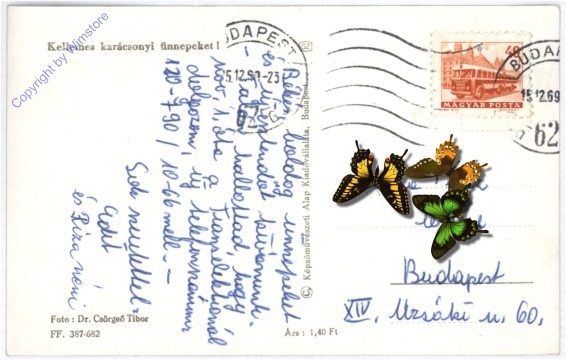 Kellemes karácsonyi ünnepeket!
Copyright by Wimstore
BUDAPEST
15.12.69-23
62
BUDAPEST
15.12.69
62
40
MAGYAR POSTA
Békés, boldog ünnepeket
és újesztendőt kívánunk.
hallottad, hogy
nov. 1. óta a Transelektronál
dolgozom, így telefonszámom
120-790 / 10-66 mell. –
Sok szeretettel:
Edit
és Riza néni
Budapest
XIV, Uzsoki u. 60,
© Képzőművészeti Alap Kiadóvállalata, Budapest
Foto: Dr. Csörgeő Tibor
FF. 387-682
Ára: 1,40 Ft